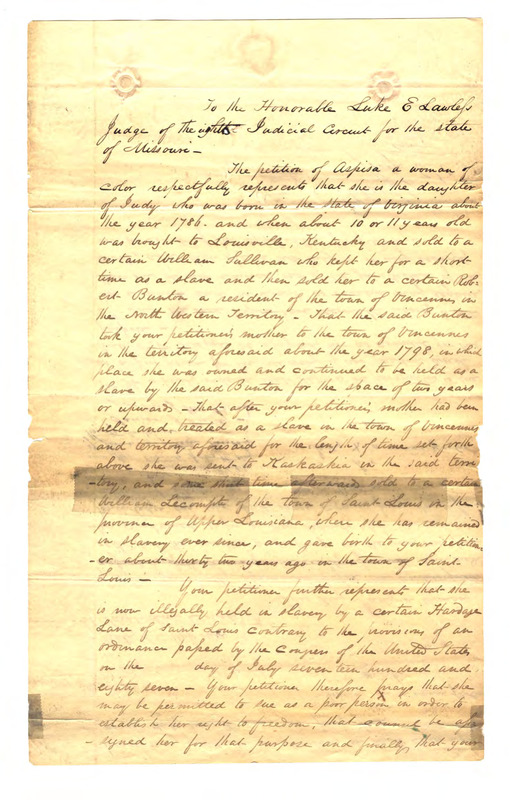 To the Honorable Luke E Lawless
Judge of the Judicial Circuit for the state
of Missouri —
The petition of Aspisa a woman of
color respectfully represents that she is the daughter
of Judy who was born in the State of Virginia about
the year 1786. and when about 10 or 11 years old
was brought to Louisville, Kentucky and sold to a
certain William Sullivan who kept her for a short
time as a slave and then sold her to a certain Rob-
ert Bunton a resident of the town of Vincennes in
the North Western Territory — That the said Bunton
took your petitioner's mother to the town of Vincennes
in the territory aforesaid about the year 1798, in which
place she was owned and continued to be held as a
slave by the said Bunton for the space of two years
or upwards — That after your petitioner's mother had been
held and treated as a slave in the town of Vincennes
and territory aforesaid for the length of time set forth
above she was sent to Kaskaskia in the said terri
-tory, and some short time afterwards sold to a certain
William Lecompte of the town of Saint Louis in the
province of Upper Louisiana, where she has remained
in slavery ever since, and gave birth to your petition-
-er about thirty two years ago in the town of Saint
Louis —
Your petitioner further represents that she
is now illegally held in slavery by a certain Hardage
Lane of Saint Louis contrary to the provisions of an
ordinance passed by the Congress of the United States
on the day of July seventeen hundred and
eighty seven — Your petitioner therefore prays that she
may be permitted to sue as a poor person in order to
establish her right to freedom, that counsel be as
-signed her for that purpose and finally, that your